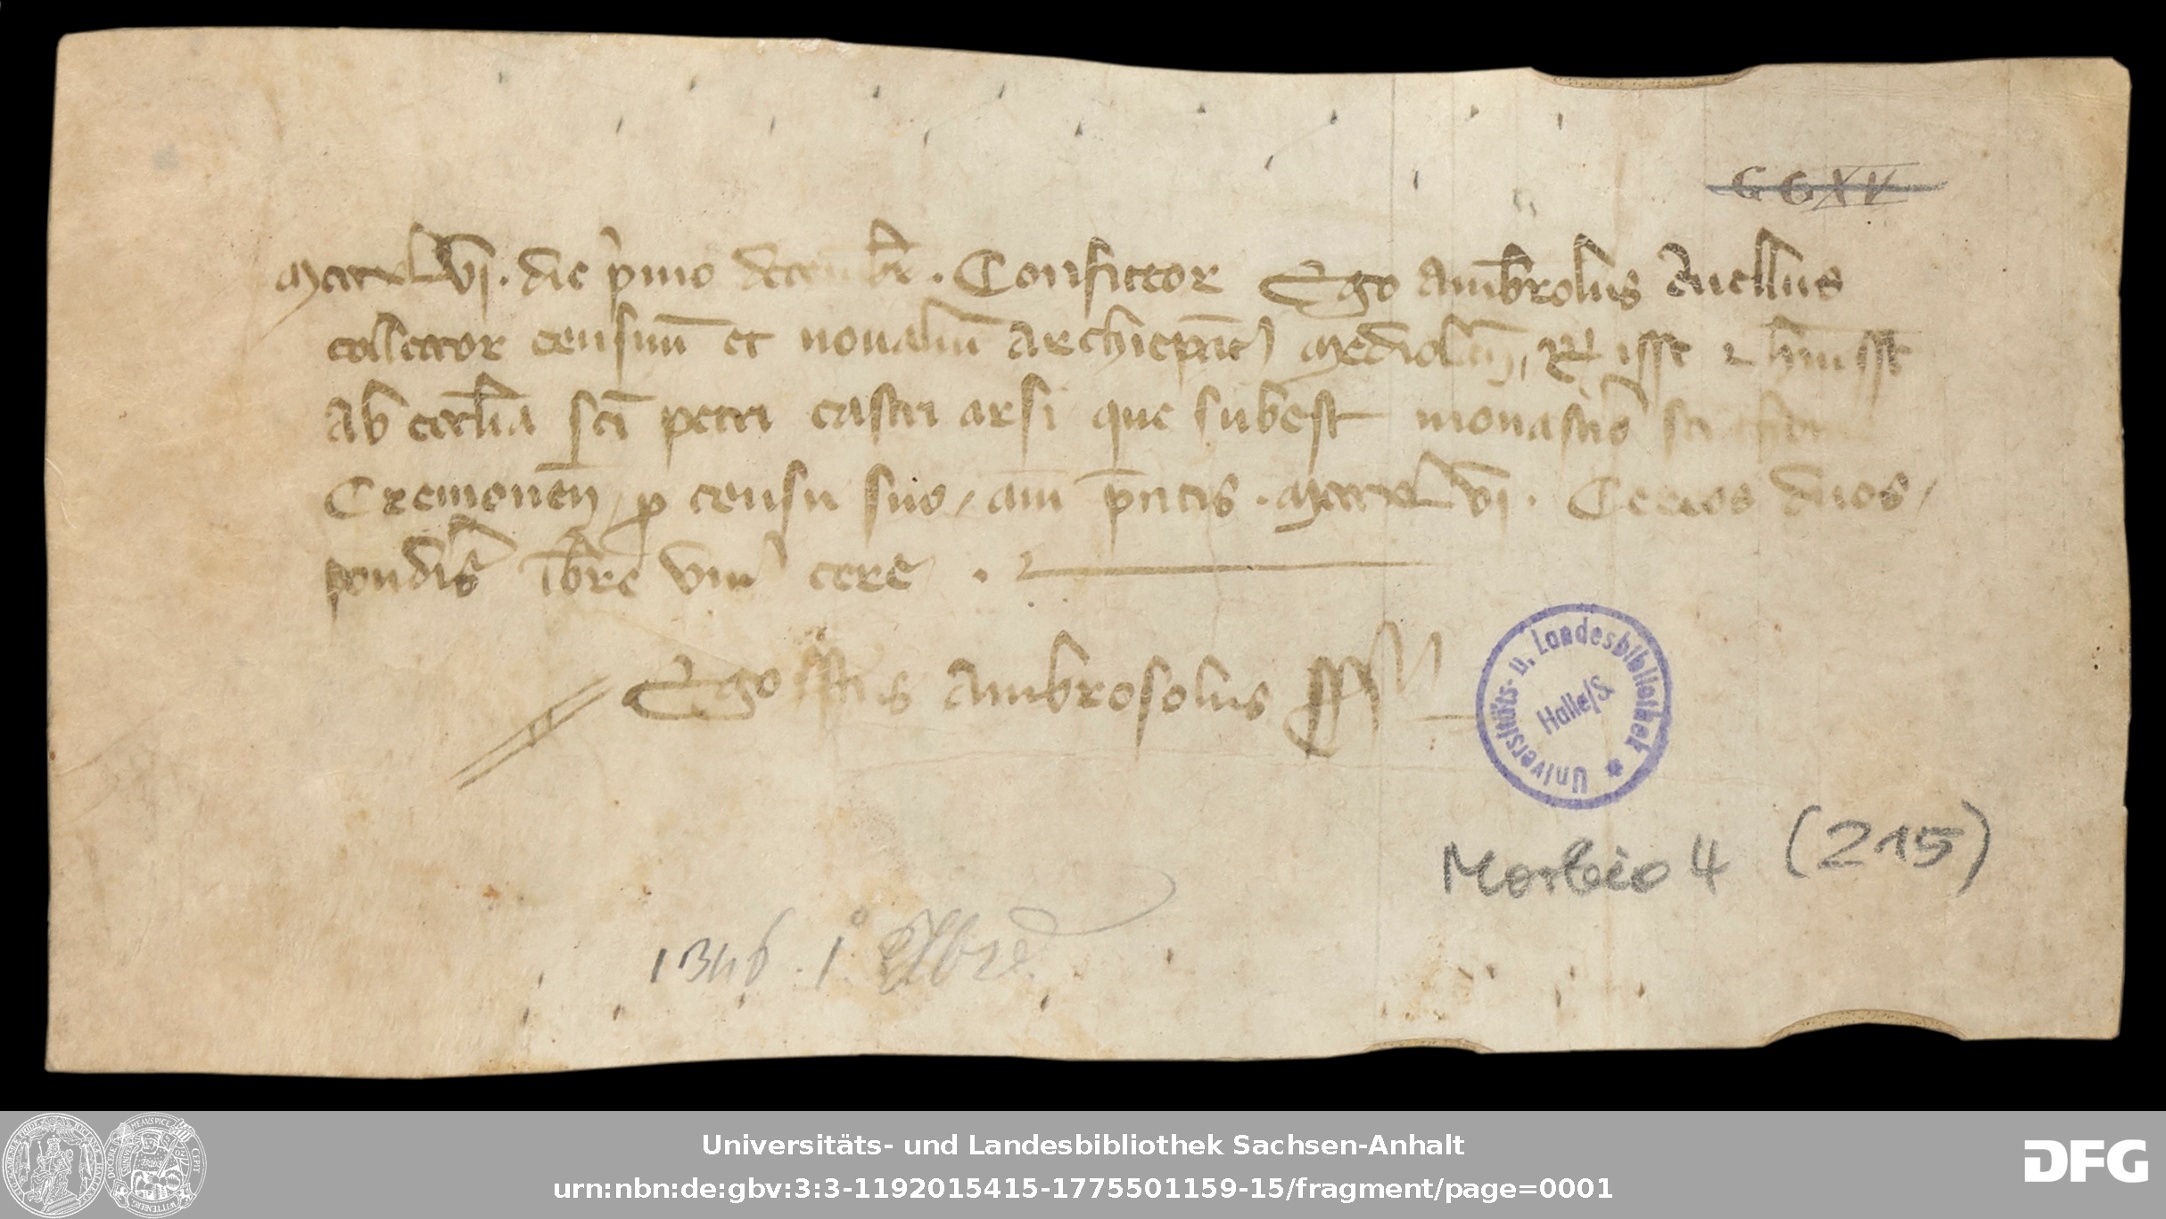 GGXV
Mcccxlvj. die p̄mo decembr̄. Confiteor Ego Ambrosolus Auellus
collector censuum et noualium Archiep̄at' Mediolan̄,
Ab eccl̄ia sc̄i petri castri arsi que subest monast̄io
Cremonen̄, ꝓ censu suo, ann̄i p̄ntis. Mcccxlvj. Cereos duos,
ponđis lib̄re Vni' cere.
Ego ss̄tus Ambrosolus ss
Universitäts- u. Landesbibliothek
Halle/S.
Morbio 4 (215)
1346. 1°
Universitäts- und Landesbibliothek Sachsen-Anhalt
urn:nbn:de:gbv:3:3-1192015415-1775501159-15/fragment/page=0001
DFG